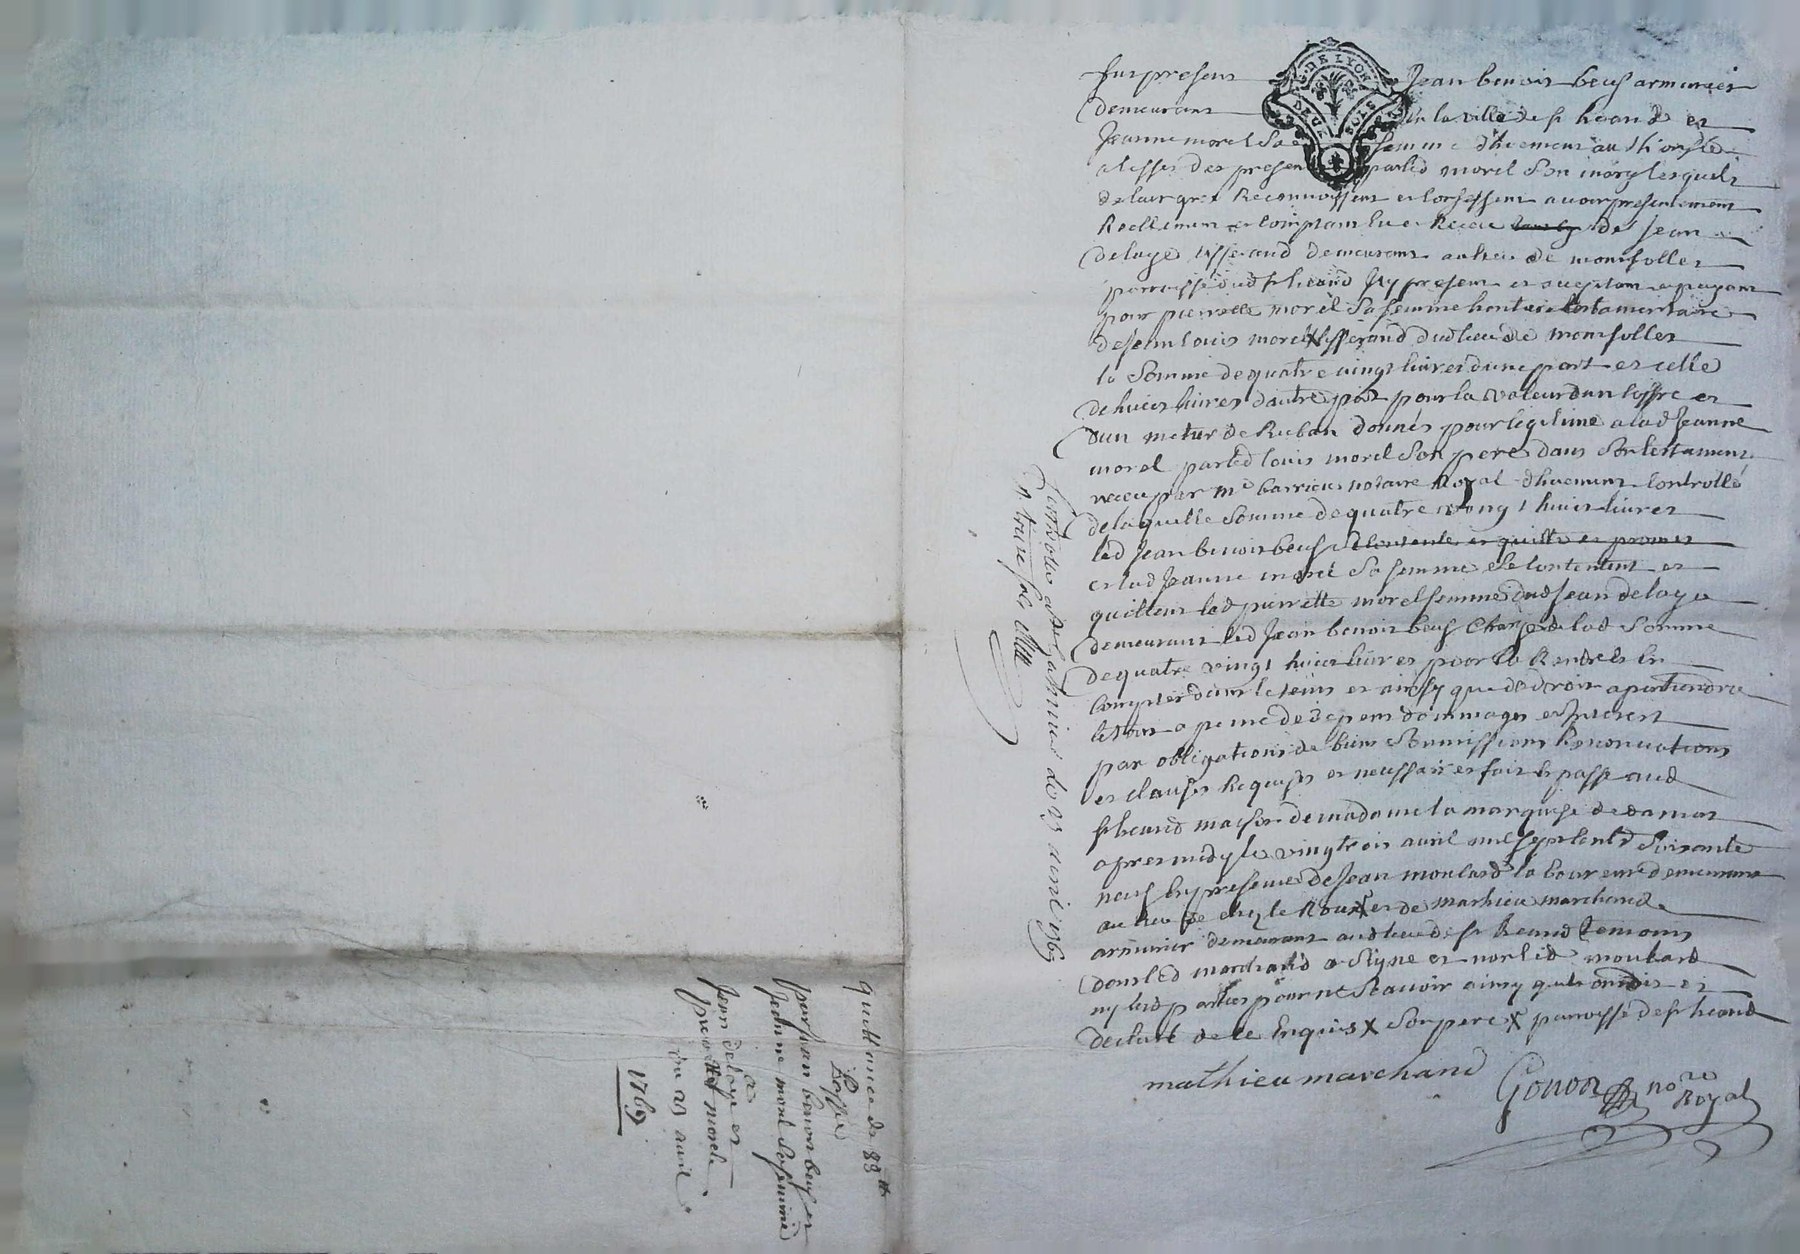 furpresens Jean benois beuf armurier
demeurans en la ville de st heand et
Jeanne morel Sa femme dhuement authorisée
a lesfes des presen parled morel Son mary lesquels
de leur gré Reconnoissent et Confessent avoir presentement
Reellement et Comptam Eu et Receu de Jean
delaye tisserand demeurans au lieu de monsoller
parroisse dud st heand Icy present et aceptan et payant
pour pierrette morel Sa femme heritiere testamentaire
de feu louis morel X tisserand dud lieu de monsoller
la Somme de quatre vings livres dune part et celle
de huict livres dautre part pour la valeur dun Coffre et
dun metier de Ruban donnés pour legitime a lad Jeanne
morel parled louis morel Son pere dans Son testament
receu par me barrieu notaire Royal dhuement Controllé
de laquelle Somme de quatre vings huict livres
led Jean benois beuf Se Contente et quitte et promet
et lad Jeanne morel Sa femme Se Contentent et
quittent lad pierrette morel femme dud Jean delaye
demeurans led Jean benois beuf Chargé de lad Somme
de quatre vings huict livres pour la Rendre En
Compter dans le tems et ainsy que de droit apartiendra
le tout a peine de depens dommages et Interest
par obligations de biens Soumissions Renonciations
et clauses Requises et necessaires fait et passé aud
st heand maison de madame la marquise de damas
apres midy le vingtrois avril mil sept Cent Soixante
neuf En presence de Jean moulard laboureur demeurans
au lieu de chez le Roux et de mathieu marchand
armurier demeurans aud lieu de st heand temoins
dont led marchand a Signé et non led moulard
ny lesd parties pour ne Scavoir ainsy quils ont dit et
declaré de ce Enquis X Son pere X parroisse de st heand
mathieu marchand
Gonon nore
Royal
a st 23 avril 1769
R treize sols
quittance de 88 tt
Passée
par Jean benois beuf et
Jeanne morel Sa femme
a
Jean delaye et
pierrette morel
du 23 avril
1769